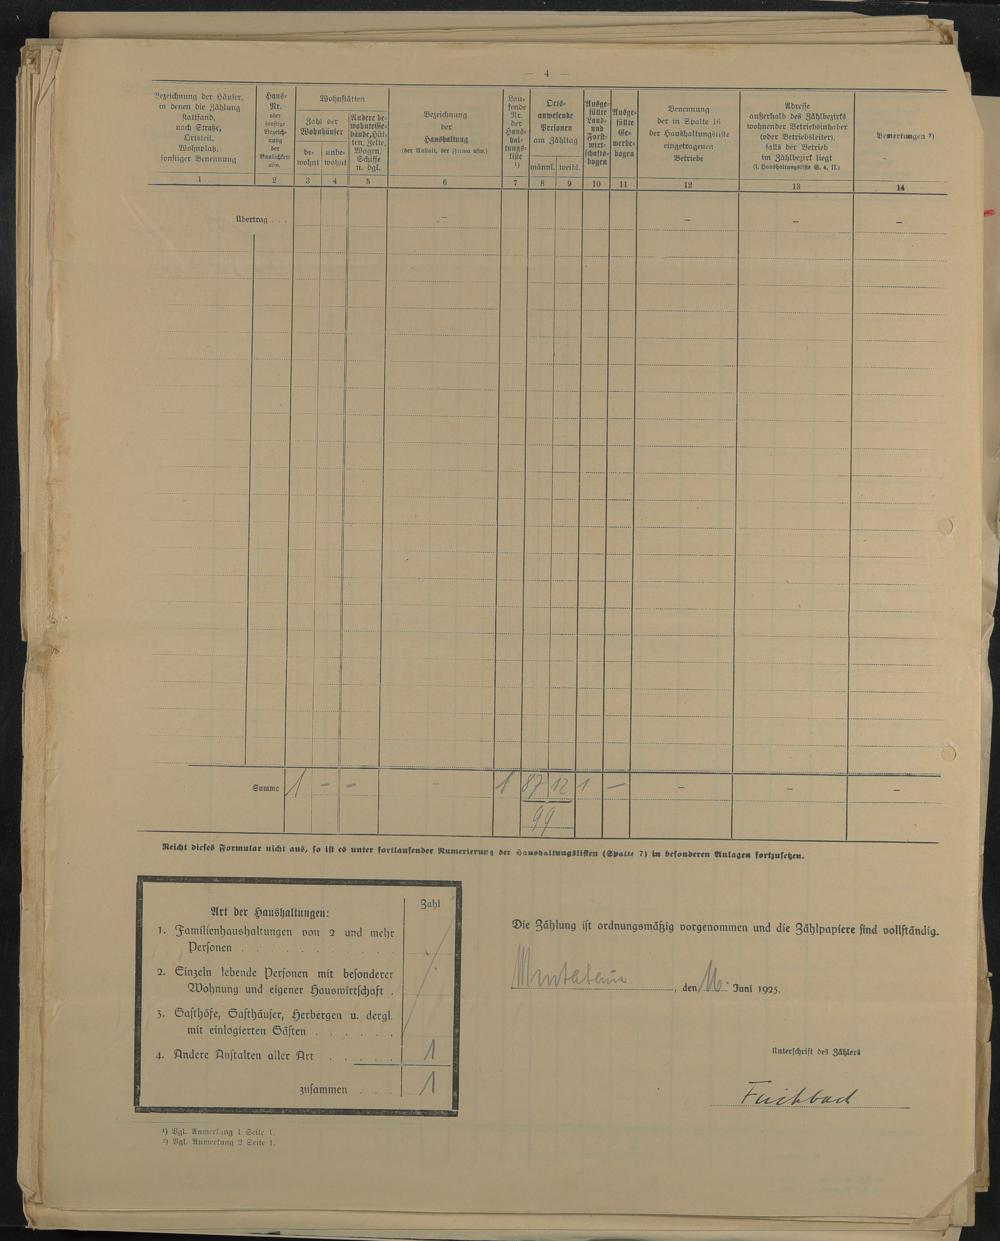 — 4 —
Bezeichnung der Häuser,
in denen die Zählung
stattfand,
nach Straße,
Ortsteil,
Wohnplatz,
sonstiger Benennung
Haus-
Nr.
oder
sonstige
Bezeich-
nung
der
Baulichkeit
usw.
Wohnstätten
Zahl der
Wohnhäuser
be-
wohnt
unbe-
wohnt
Andere be-
wohnte Ge-
bäude, Hüt-
ten, Zelte,
Wagen,
Schiffe
u. dgl.
Bezeichnung
der
Haushaltung
(der Anstalt, der Firma usw.)
Lau-
fende
Nr.
der
Haus-
hal-
tungs-
liste
¹)
Orts-
anwesende
Personen
am Zähltag
männl.
weibl.
Ausge-
füllte
Land-
und
Forst-
wirt-
schafts-
bogen
Ausge-
füllte
Ge-
werbe-
bogen
Benennung
der in Spalte 16
der Haushaltungsliste
eingetragenen
Betriebe
Adresse
außerhalb des Zählbezirks
wohnender Betriebsinhaber
(oder Betriebsleiter),
falls der Betrieb
im Zählbezirk liegt
(s. Haushaltungsliste S. 4, II.)
Bemerkungen ²)
1 2 3 4 5 6 7 8 9 10 11 12 13 14
Übertrag . . . — — — —
Summe 1 – – – 1 87 12 1 — — — —
99
Reicht dieses Formular nicht aus, so ist es unter fortlaufender Numerierung der Haushaltungslisten (Spalte 7) in besonderen Anlagen fortzusetzen.
Art der Haushaltungen: Zahl
1. Familienhaushaltungen von 2 und mehr
Personen . . . . . . . . . .
2. Einzeln lebende Personen mit besonderer
Wohnung und eigener Hauswirtschaft .
3. Gasthöfe, Gasthäuser, Herbergen u. dergl.
mit einlogierten Gästen . . . . . .
4. Andere Anstalten aller Art . . . . . 1
zusammen . . . 1
Die Zählung ist ordnungsmäßig vorgenommen und die Zählpapiere sind vollständig.
, den 16. Juni 1925.
Unterschrift des Zählers
¹) Vgl. Anmerkung 1 Seite 1.
²) Vgl. Anmerkung 2 Seite 1.